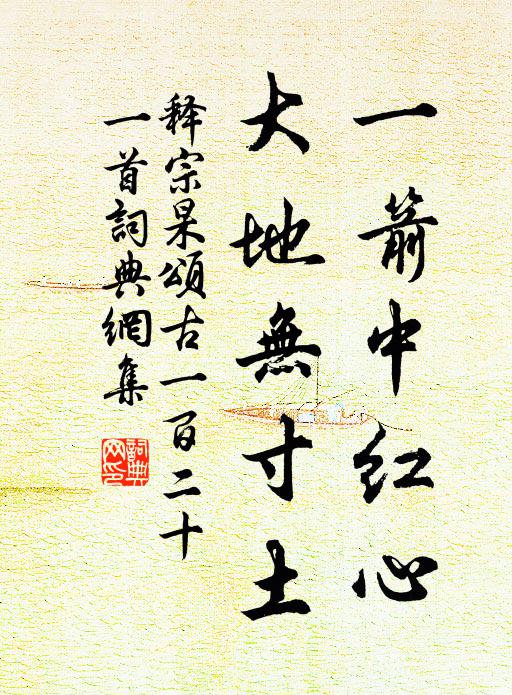 一箭中红心
大地無寸土
释宗杲頌古一百二十
一首詞典網集
詞典网印